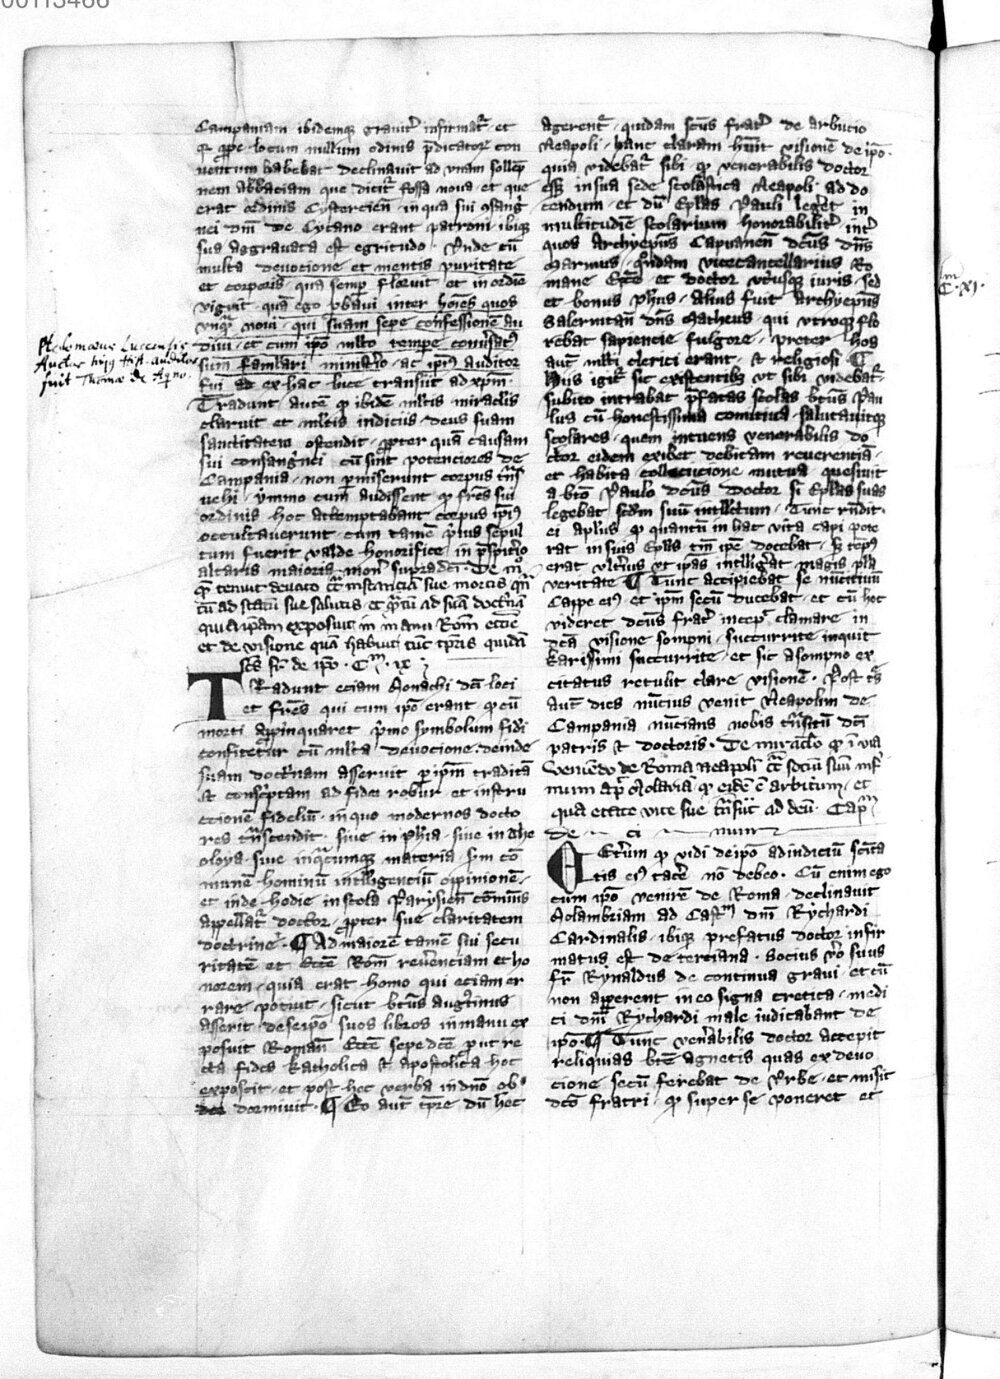 00113466
Campaniam ibidemque graviter infirmatur et
quia prope locum nullum ordinis predicatorum con
ventum habebat declinavit ad unam sollemp
nem Abbaciam que dicitur fossa nova et que
erat ordinis Cystercien in qua sui consangui
nei dnī de Cycano erant patroni ibique
sua aggravata est egritudo Unde cum
multa devocione et mentis puritate
et corporis qua semper floruit et in ordine
viguit quam ego probavi inter hoīes quos
unquam novi qui suam sepe confessionem au
divi et cum ipso multo tempore conversatus
sum familiari ministerio ac ipsius auditor
fui ad ex hac luce transiit ad xpm
Tradunt autem quod ibidem multis miraclis
claruit et multis indiciis deus suam
sanctitatem ostendit propter quam causam
sui consanguinei cum sint potenciores de
Campania non permiserunt corpus
vehi ymmo cum audissent quod fratres sui
ordinis hoc attemptabant corpus ipsius
occultaverunt cum tamen prius sepul
tum fuerit valde honorifice in presbiterio
altaris maioris monasterii supradicti De
quem tenuit devoto circa instanciam sue mortis quantum
ad statum sue salutis et quantum ad suam doctrinam
qui ipsam exposuit in manu Rom eccē
et de visione quam habuit tunc temporis quidam
scūs fr de ipō Cm ix
Tradunt eciam Monachi dcī loci
et frēs qui cum ipō erant quod cum
morti appinquaret primo symbolum fidei
confitetur cum multa devocione deinde
suam doctrinam asseruit per ipsum traditam
et conscriptam ad fidei robur et instru
ctionem fidelium in quo modernos docto
res transcendit sive in phīa sive in the
oloya sive in quacumque materia secundum com
munem hominum intelligencium opinionem
et inde hodie in scola Parysien communis
appellatur doctor propter sue claritatem
doctrine Ad maiorem tamen sui secu
ritatem et Eccē Rom reverenciam et ho
norem quia erat homo qui eciam er
rare potuit sicut beatus augustinus
asserit de seipso suos libros in manu ex
posuit Roman Eccē sepe dcē put re
cta fides katholica et apostolica hoc
exposcit et post hec verba in dnō ob
dormivit Eo aut tempore dum hec
Ptolomaeus Lucensis
Auctor hujus Hist. auditor
fuit Thomae de Aquino.
agerentur quidam scūs frater de arbucio
Neapoli hanc claram habuit visionem de ipō
quia videbatur sibi quod venerabilis doctor
esset in sua sede scolastica Neapoli ad do
cendum et dum Eplas Pauli legeret in
multitudine scolarium honorabiliter inter
quos Archyepus Capuanen dcūs dnūs
Marinus quondam vicecancellarius Ro
mane Eccē et doctor utriusque iuris sed
et bonus phūs alius fuit archyepūs
Salernitan dnūs Matheus qui utroque flo
rebat sapiencie fulgore preter hos
autem multi clerici erant et religiosi
Hiis igitur sic existentibus ut sibi videbatur
subito intrabat prefatas scolas beatus Pau
lus cum honestissima comitiva salutavitque
scolares quem intuens venerabilis do
ctor eidem exibet debitam reverenciam
et habita collocucione mutua quesivit
a beato Paulo dcūs doctor si Eplas suas
legebat secundum suum intellectum Tunc respondit
ei aplus quod quantum in hac vita capi pote
rat in suis Eplis tamen ipē docebat sed tempus
erat ulterius ut ipās intelligeret magis plena
veritate Tunc accipiebat se nuncium
Cappe eius et ipsum secum ducebat et cum hoc
videret dcūs frater incepit clamare in
dcā visione sompni succurrite inquit
karissimi succurrite et sic a sompno ex
citatus retulit clare visionem Post tres
autem dies nuncius venit Neapolim de
Campania nuncians nobis transitum dcī
patris et doctoris De miraclo quod in via
veniendo de Roma Neapoli circa socium suum infir
mum apud Molariam quod eidem est arbitrium et
qua etate vite sue transiit ad deum Capm
De ci mum
Ceterum quod vidi de ipō ad indicium sancti
tatis eius tacere nō debeo Cum enim ego
cum ipō venirem de Roma declinavit
Molambriam ad Castrum dnī Rychardi
Cardinalis ibique prefatus doctor infir
matus est de terciana Socius vero suus
fr Rynaldus de continua gravi et cum
non apperent in eo signa cretica medi
ci dnī Rychardi male iudicabant de
ipō Tunc venerabilis doctor accepit
reliquias bte Agnetis quas ex devo
cione secum ferebat de Urbe et misit
dcō fratri quod super se poneret et
C. xj.